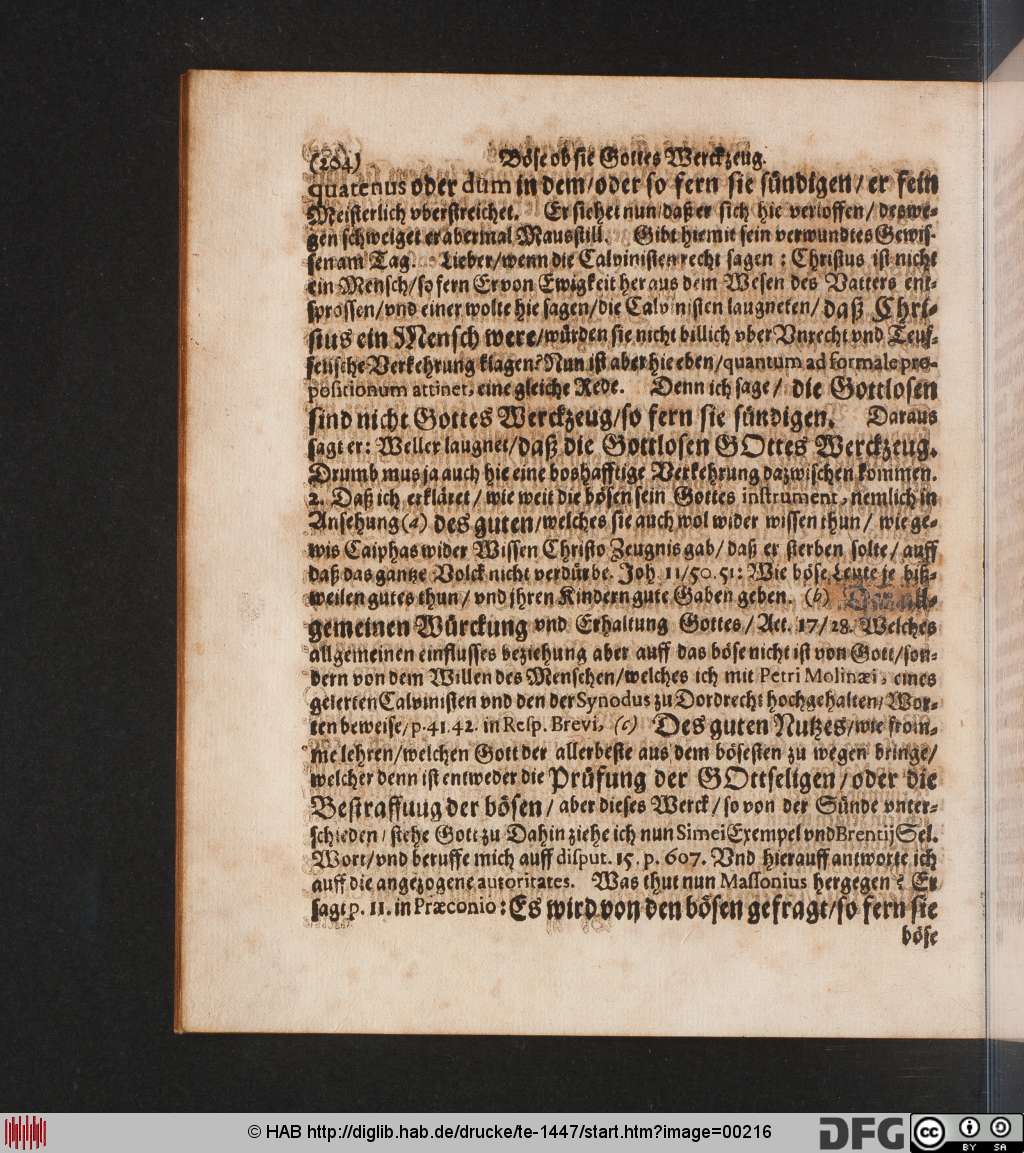 (204) Böse ob sie Gottes Werckzeug.
quatenus oder dum in dem/oder so fern sie sündigen/ er fein
Meisterlich vberstreichet. Er siehet nun daß er sich hie verloffen/ deswe-
gen schweiget er abermal Mausstill. Gibt hiemit sein verwundtes Gewis-
sen am Tag. Lieber/wenn die Calvinisten recht sagen : Christus ist nicht
ein Mensch/so fern Er von Ewigkeit her aus dem Wesen des Vatters ent-
sprossen/vnd einer wolte hie sagen/die Calvinisten laugneten/ daß Chri-
stus ein Mensch were/würden sie nicht billich vber Vnrecht vnd Teuf-
felische Verkehrung klagen? Nun ist aber hie eben/quantum ad formale pro-
positionum attinet, eine gleiche Rede. Denn ich sage/ die Gottlosen
sind nicht Gottes Werckzeug/so fern sie sündigen. Daraus
sagt er: Weller laugnet/daß die Gottlosen GOttes Werckzeug.
Drumb mus ja auch hie eine boshafftige Verkehrung dazwischen kommen.
2. Daß ich erkläret/ wie weit die bösen sein Gottes instrument, nemlich in
Ansehung (a) des guten/welches sie auch wol wider wissen thun/ wie ge-
wis Caiphas wider Wissen Christo Zeugnis gab/ daß er sterben solte/ auff
daß das gantze Volck nicht verdürbe. Joh. 11/50. 51: Wie böse Leute je biß-
weilen gutes thun/ vnd jhren Kindern gute Gaben geben. (b) Der all-
gemeinen Würckung vnd Erhaltung Gottes/ Act. 17/28. Welches
allgemeinen einflusses beziehung aber auff das böse nicht ist von Gott/son-
dern von dem Willen des Menschen/welches ich mit Petri Molinæi, eines
gelerten Calvinisten vnd den der Synodus zu Dordrecht hochgehalten/ Wor-
ten beweise/p. 41. 42. in Resp. Brevi, (c) Des guten Nutzes/wie from-
me lehren/welchen Gott der allerbeste aus dem bösesten zu wegen bringe/
welcher denn ist entweder die Prüfung der GOttseligen/oder die
Bestraffuug der bösen/ aber dieses Werck/ so von der Sünde vnter-
schieden/ stehe Gott zu Dahin ziehe ich nun Simei Exempel vnd Brentij Sel.
Wort/vnd beruffe mich auff disput. 15. p. 607. Vnd hierauff antworte ich
auff die angezogene autoritates. Was thut nun Massonius hergegen ? Er
sagt p. 11. in Præconio : Es wird von den bösen gefragt/so fern sie
böse
© HAB http://diglib.hab.de/drucke/te-1447/start.htm?image=00216
DFG
cc
BY SA